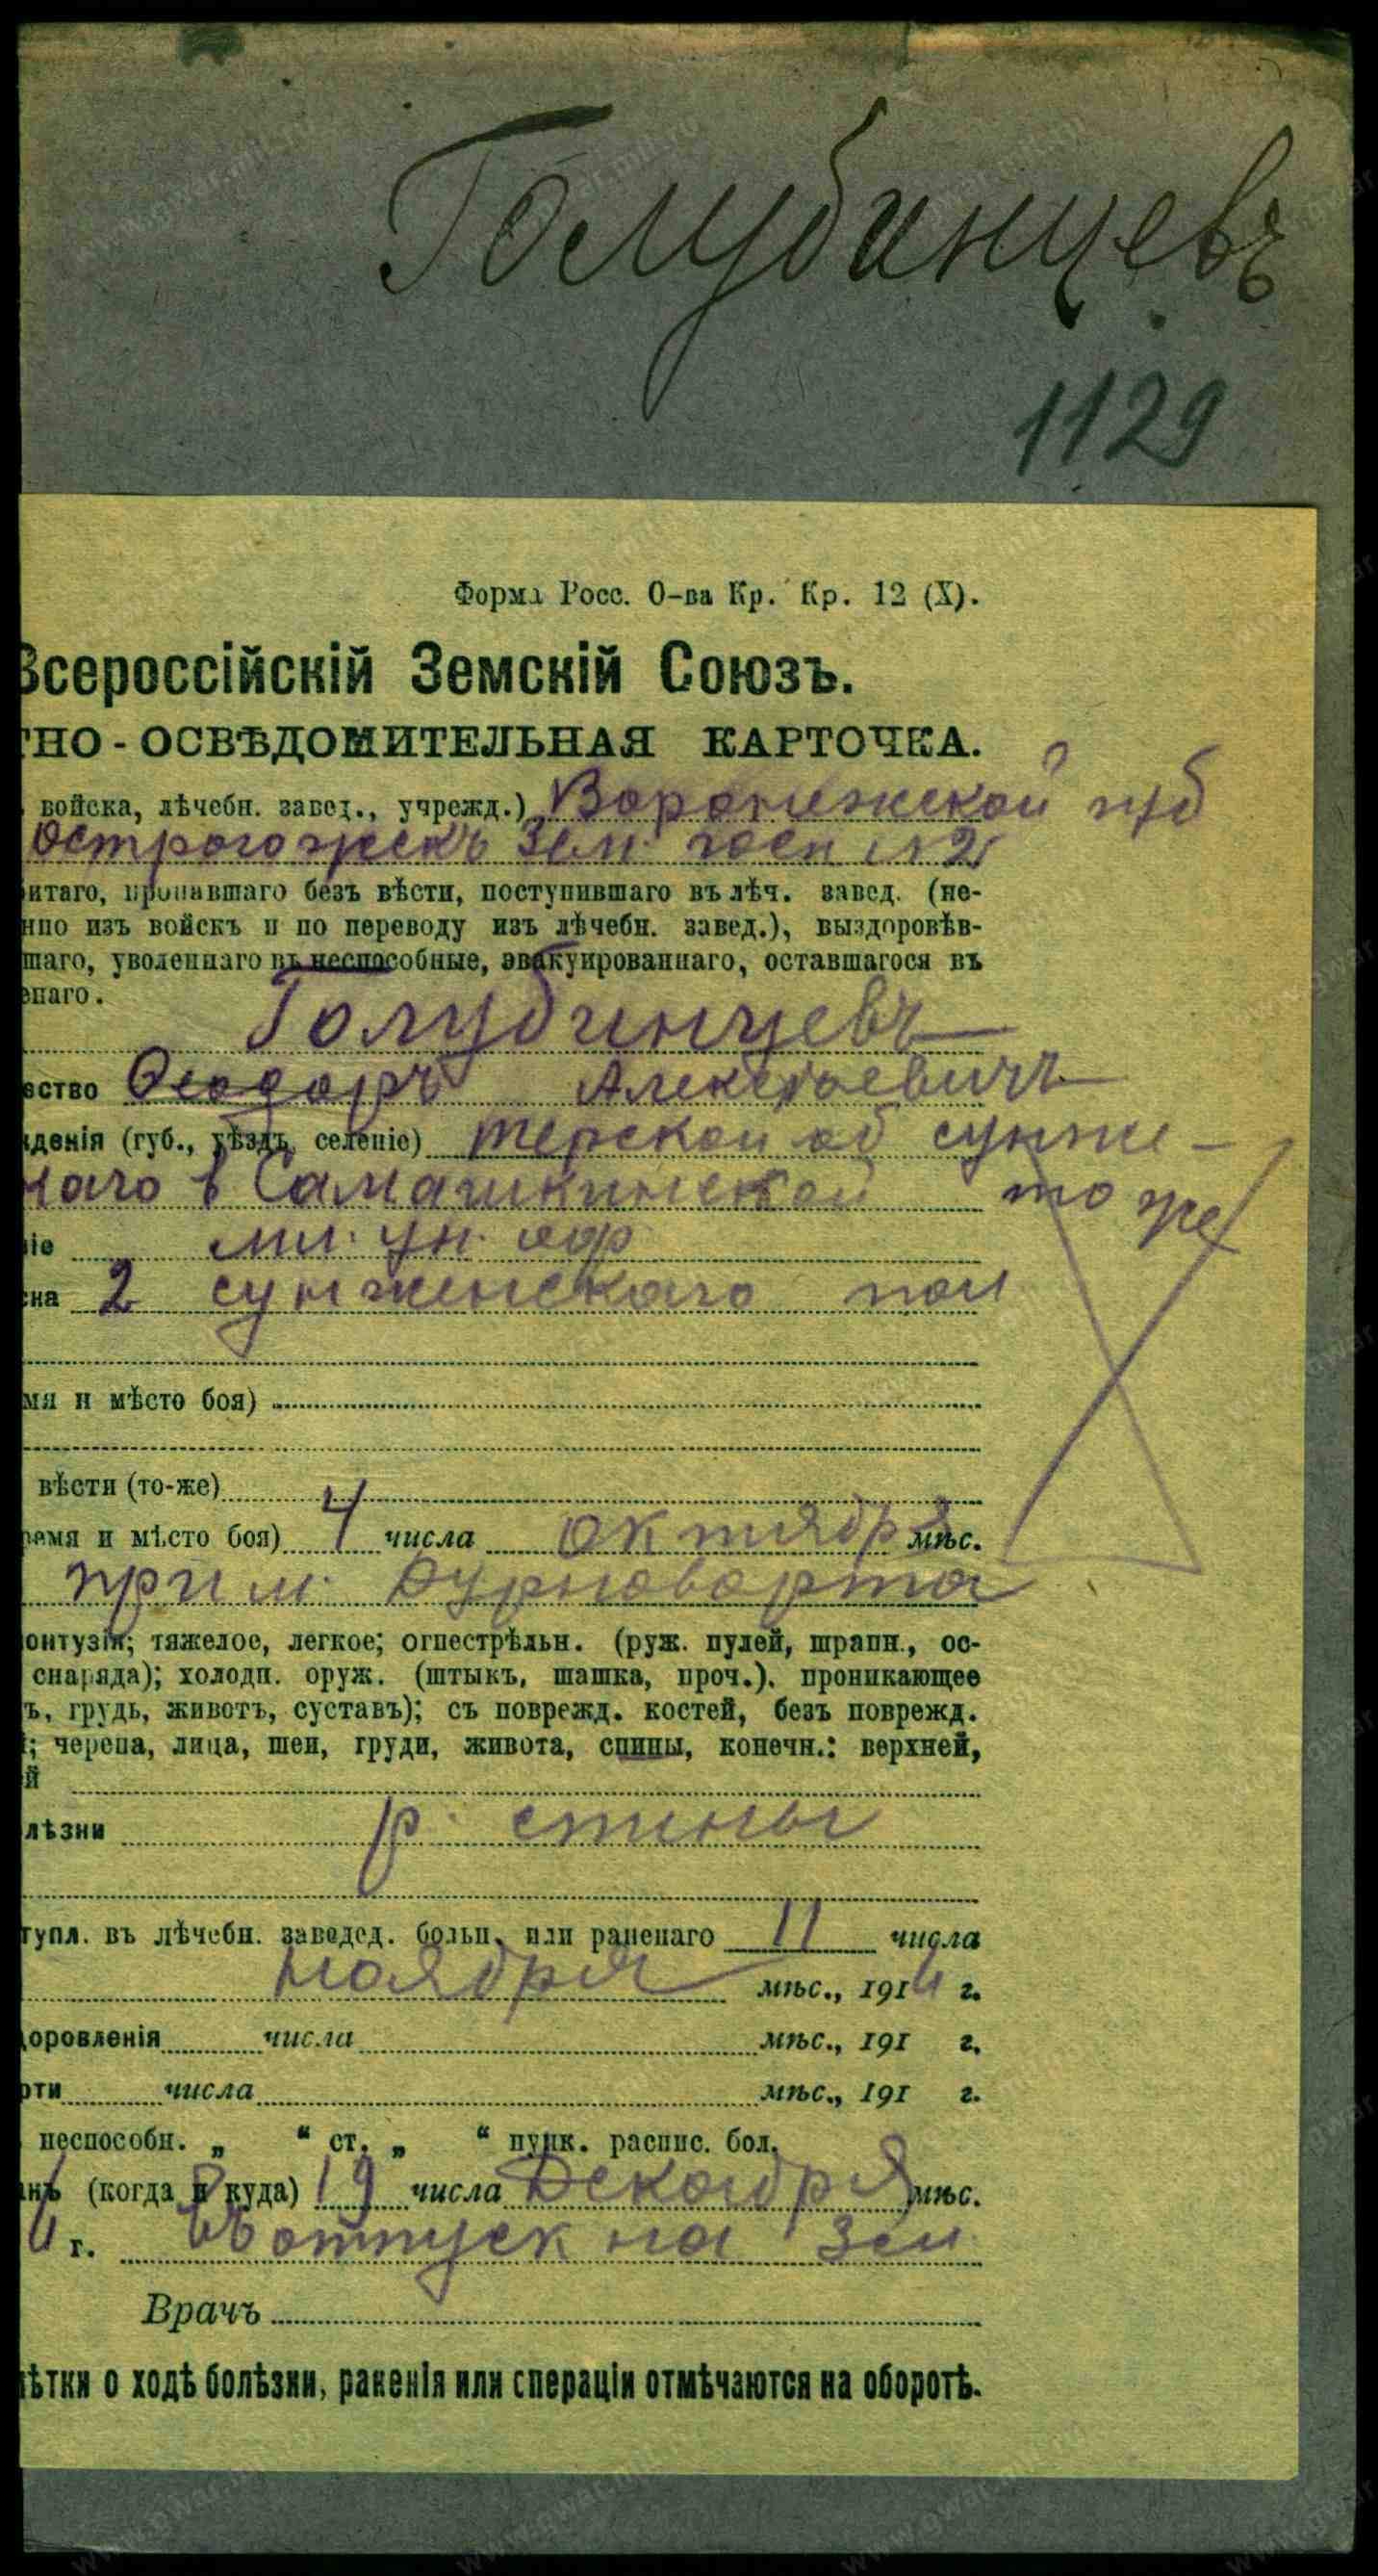 Голубинцевъ
1129
Форма Росс. О-ва Кр. Кр. 12 (X).
Всероссійскій Земскій Союзъ.
тно-ОСВѢДОМИТЕЛЬНАЯ КАРТОЧКА.
войска, лѣчебн. завед., учрежд.) Воронежской губ
Острогожскъ Зем. госп №2
итаго, пропавшаго безъ вѣсти, поступившаго въ лѣч. завед. (не-
нно изъ войскъ и по переводу изъ лѣчебн. завед.), выздоровѣв-
шаго, уволеннаго въ неспособные, эвакуированнаго, оставшагося въ
енаго.
Голубинцевъ
ество Ѳеодоръ Алексѣевичъ
денія (губ., уѣздъ, селеніе) Терской об сунже-
наго в Самашкинской то же
іе мл. ун. оф
на 2 сунженскаго пол
мя и мѣсто боя)
вѣсти (то-же)
ремя и мѣсто боя) 4 числа октября мѣс.
онтузія; тяжелое, легкое; огнестрѣльн. (руж. пулей, шрапн., ос-
снаряда); холодн. оруж. (штыкъ, шашка, проч.). проникающее
ъ, грудь, животъ, суставъ); съ поврежд. костей, безъ поврежд.
; черепа, лица, шеи, груди, живота, спины, конечн.: верхней,
й
лѣзни р. спины
тупл. въ лѣчебн. заведед. больн. или раненаго 11 числа
ноября мѣс., 1914 г.
оровленія числа мѣс., 191 г.
рти числа мѣс., 191 г.
неспособн. „ “ ст. „ “ пунк. распис. бол.
нъ (когда и куда) 19 числа Декабря мѣс.
4 г. въ отпуск на
Врачъ
ѣтки о ходѣ болѣзни, раненія или операціи отмѣчаются на оборотѣ.
www.gwar.mil.ru